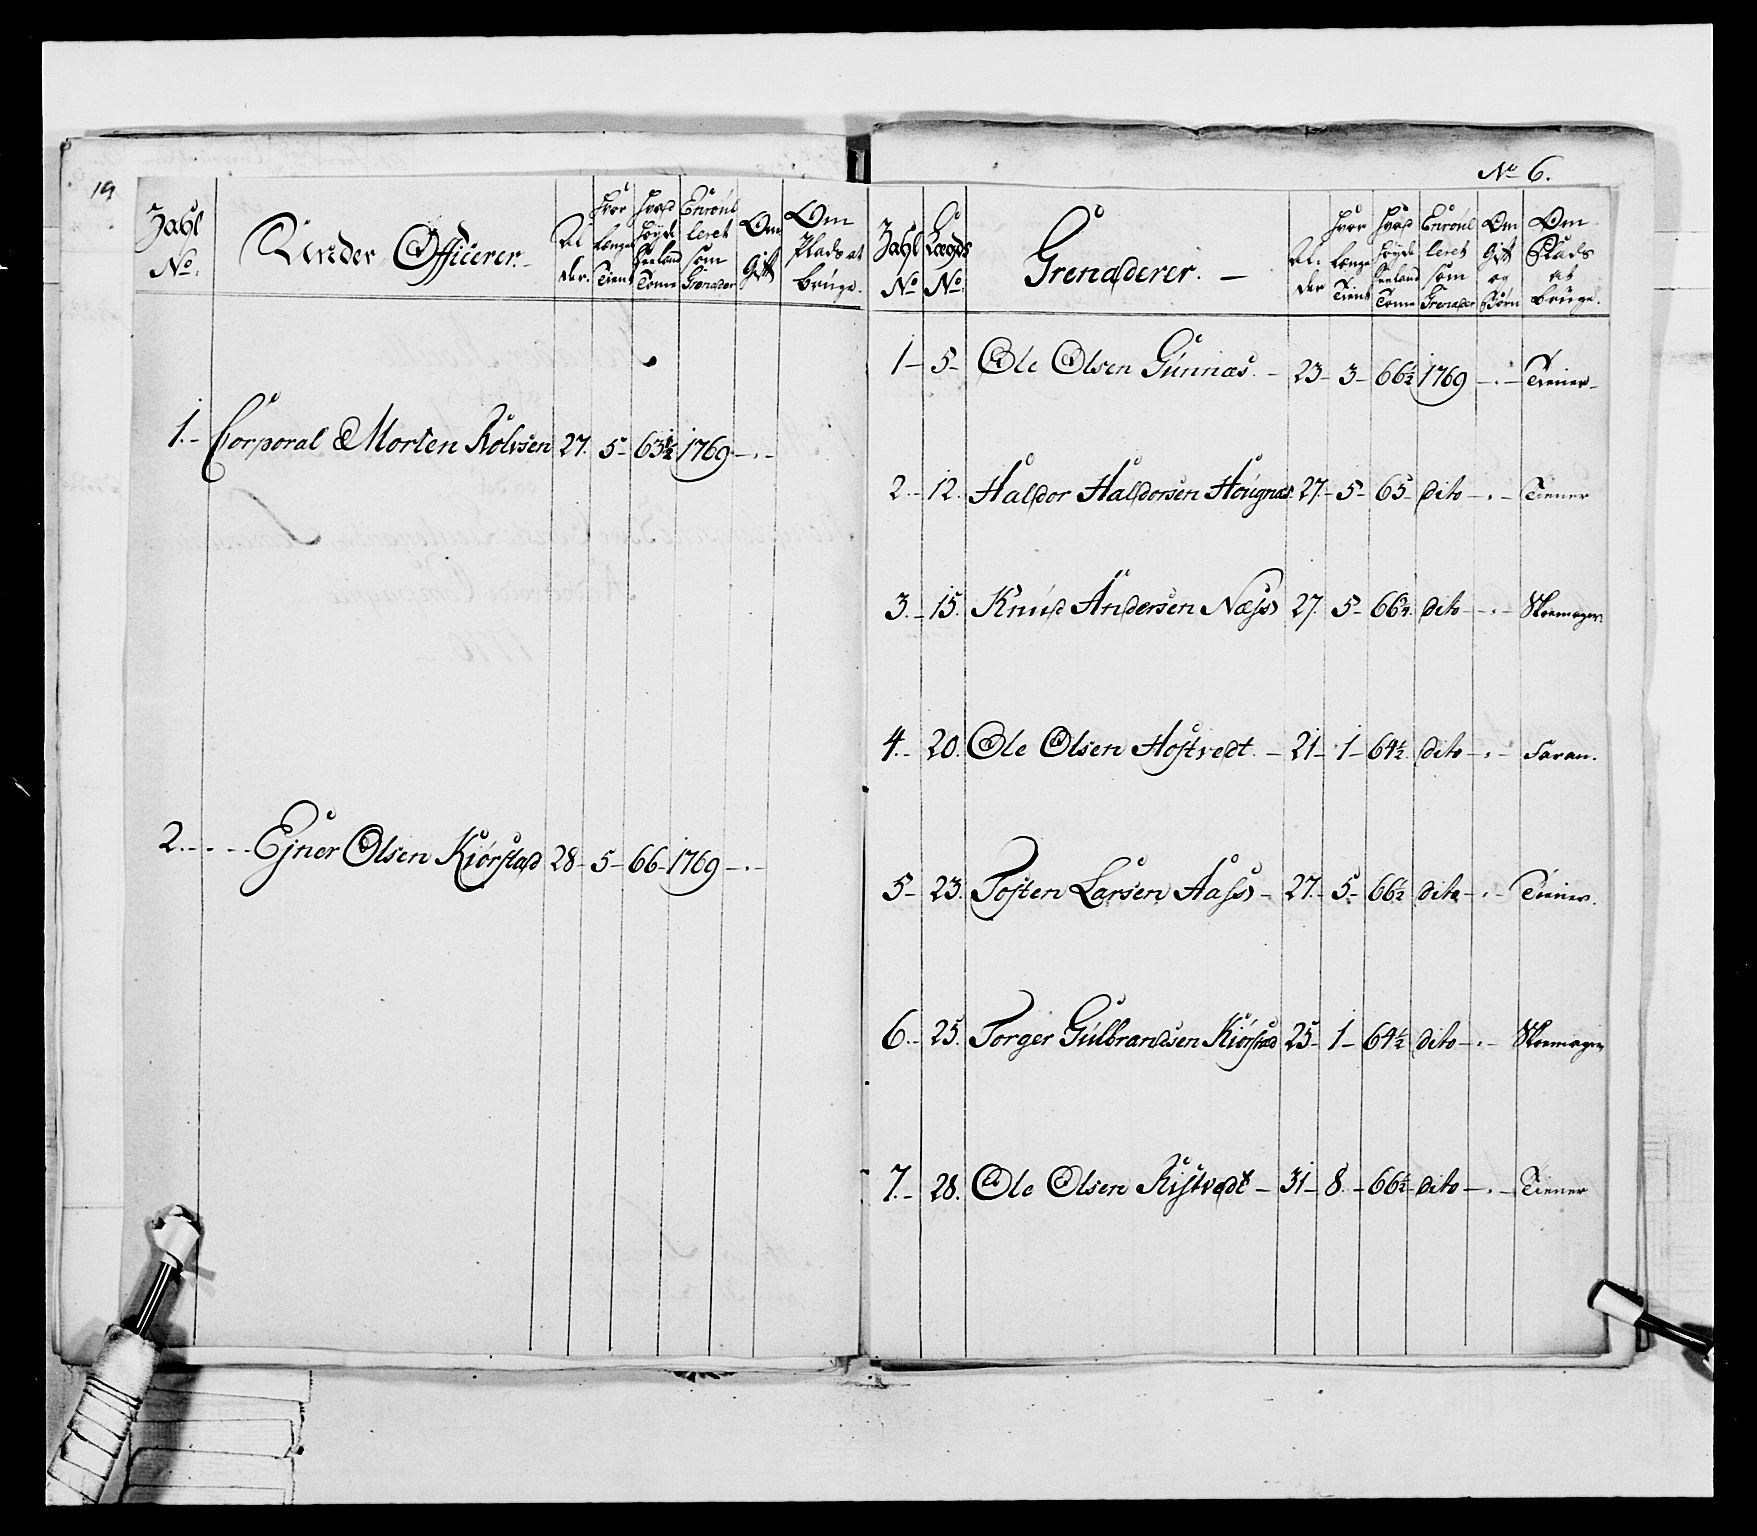 19
Zahl No. Under Officerer. Al der. Hvor Længe Tient Hvad Høyde Seeland Tomr Enroul leret som Grenader Om Gift Om Plads at bruge.
1.- Corporal Morten Rolvsen 27. 5- 63½ 1769. -.-
2.-.-.- Ejner Olsen Kiørstad 28- 5- 66- 1769 -.-
No 6.
Zahl No Lægds No. Grenaderer. - Al: der Hvor Længe Tient Hvad Høyde Seeland Tomr Enroul leret som Grenader Om Gift og Børn Om Plads at bruge.
1- 5- Ole Olsen Gunnæs. - 23- 3- 66½ 1769 -.- Tiener-
2.- 12. Haldor Haldorsen Hougnæs 27.- 5- 65- dito -.- Tiener
3.- 15. Knud Andersen Næss 27. 5- dito -.- Skoemager
4.- 20. Ole Olsen Hostvedt. - 21- 1- 64½ dito -.-
5- 23. Tosten Larsen Aass - 27.- 5- 66½ dito -.- Tiener.
6.- 25. Torger Gulbrandsen Kiørstad 25- 1- 64½ dito -.- Skoemager
7.- 28. Ole Olsen Ristvedt - 31- 8.- 66½ dito -.- Tiener